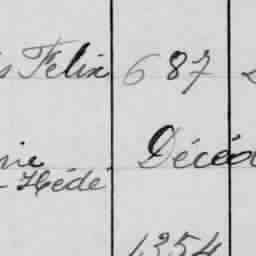 s Felix 687
ne Décéd
- Hédé
1354